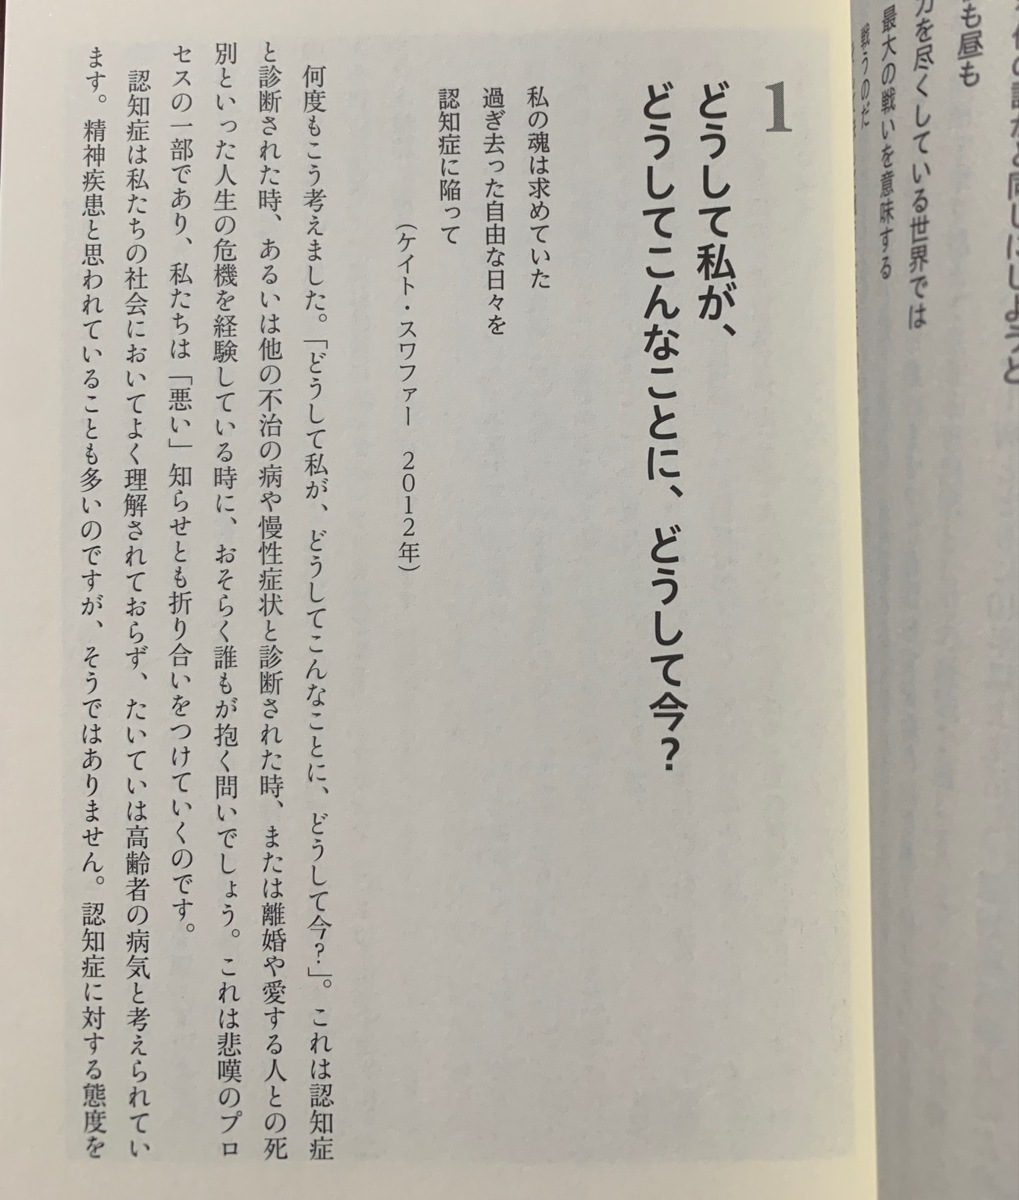 も昼も
力を尽くしている世界では
最大の戦いを意味する
戦うのだ
1
どうして私が、
どうしてこんなことに、どうして今？
私の魂は求めていた
過ぎ去った自由な日々を
認知症に陥って
（ケイト・スワファー　2012年）
何度もこう考えました。「どうして私が、どうしてこんなことに、どうして今？」。これは認知症
と診断された時、あるいは他の不治の病や慢性症状と診断された時、または離婚や愛する人との死
別といった人生の危機を経験している時に、おそらく誰もが抱く問いでしょう。これは悲嘆のプロ
セスの一部であり、私たちは「悪い」知らせとも折り合いをつけていくのです。
認知症は私たちの社会においてよく理解されておらず、たいていは高齢者の病気と考えられてい
ます。精神疾患と思われていることも多いのですが、そうではありません。認知症に対する態度を